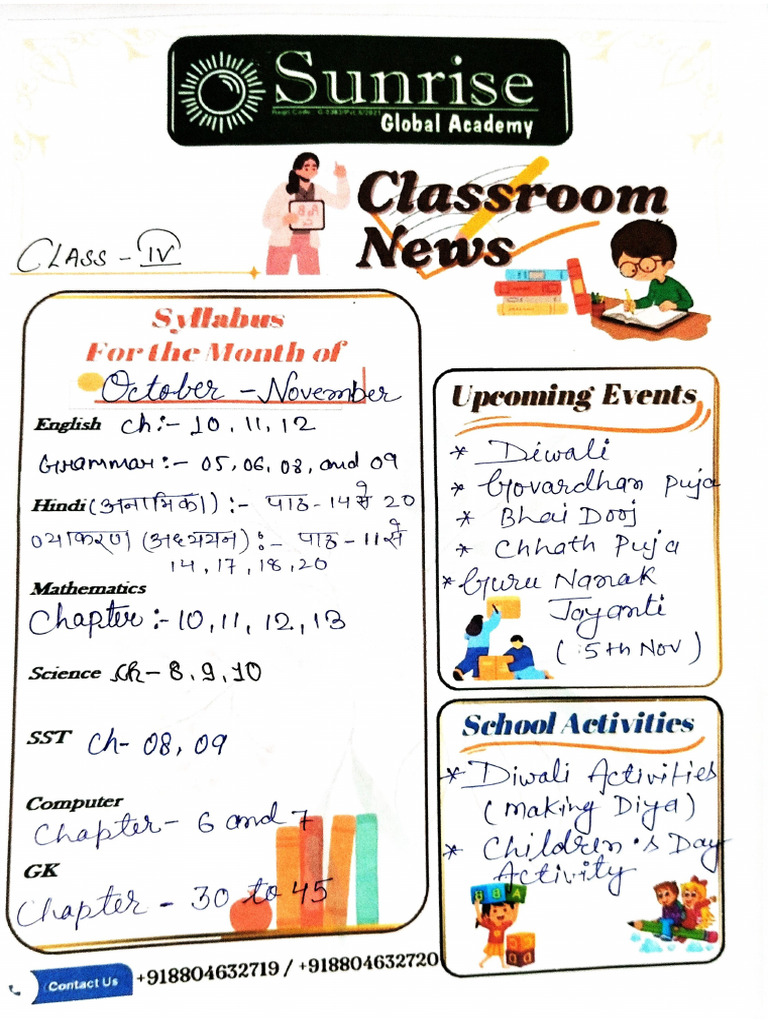 Sunrise
Global Academy
Classroom
News
CLASS - IV
Syllabus
For the Month of
October - November
English ch:- 10, 11, 12
Grammar:- 05, 06, 08, and 09
Hindi (अनामिका) :- पाठ - 14 से 20
व्याकरण (अध्ययन) :- पाठ - 11 से
14, 17, 18, 20
Mathematics
Chapter :- 10, 11, 12, 13
Science ch- 8, 9, 10
SST ch- 08, 09
Computer
Chapter - 6 and 7
GK
Chapter - 30 to 45
Upcoming Events
* Diwali
* Govardhan Puja
* Bhai Dooj
* Chhath Puja
* Guru Nanak
Jayanti
(5th Nov)
School Activities
* Diwali Activities
(making Diya)
* Children's Day
Activity
Contact Us +918804632719 / +918804632720